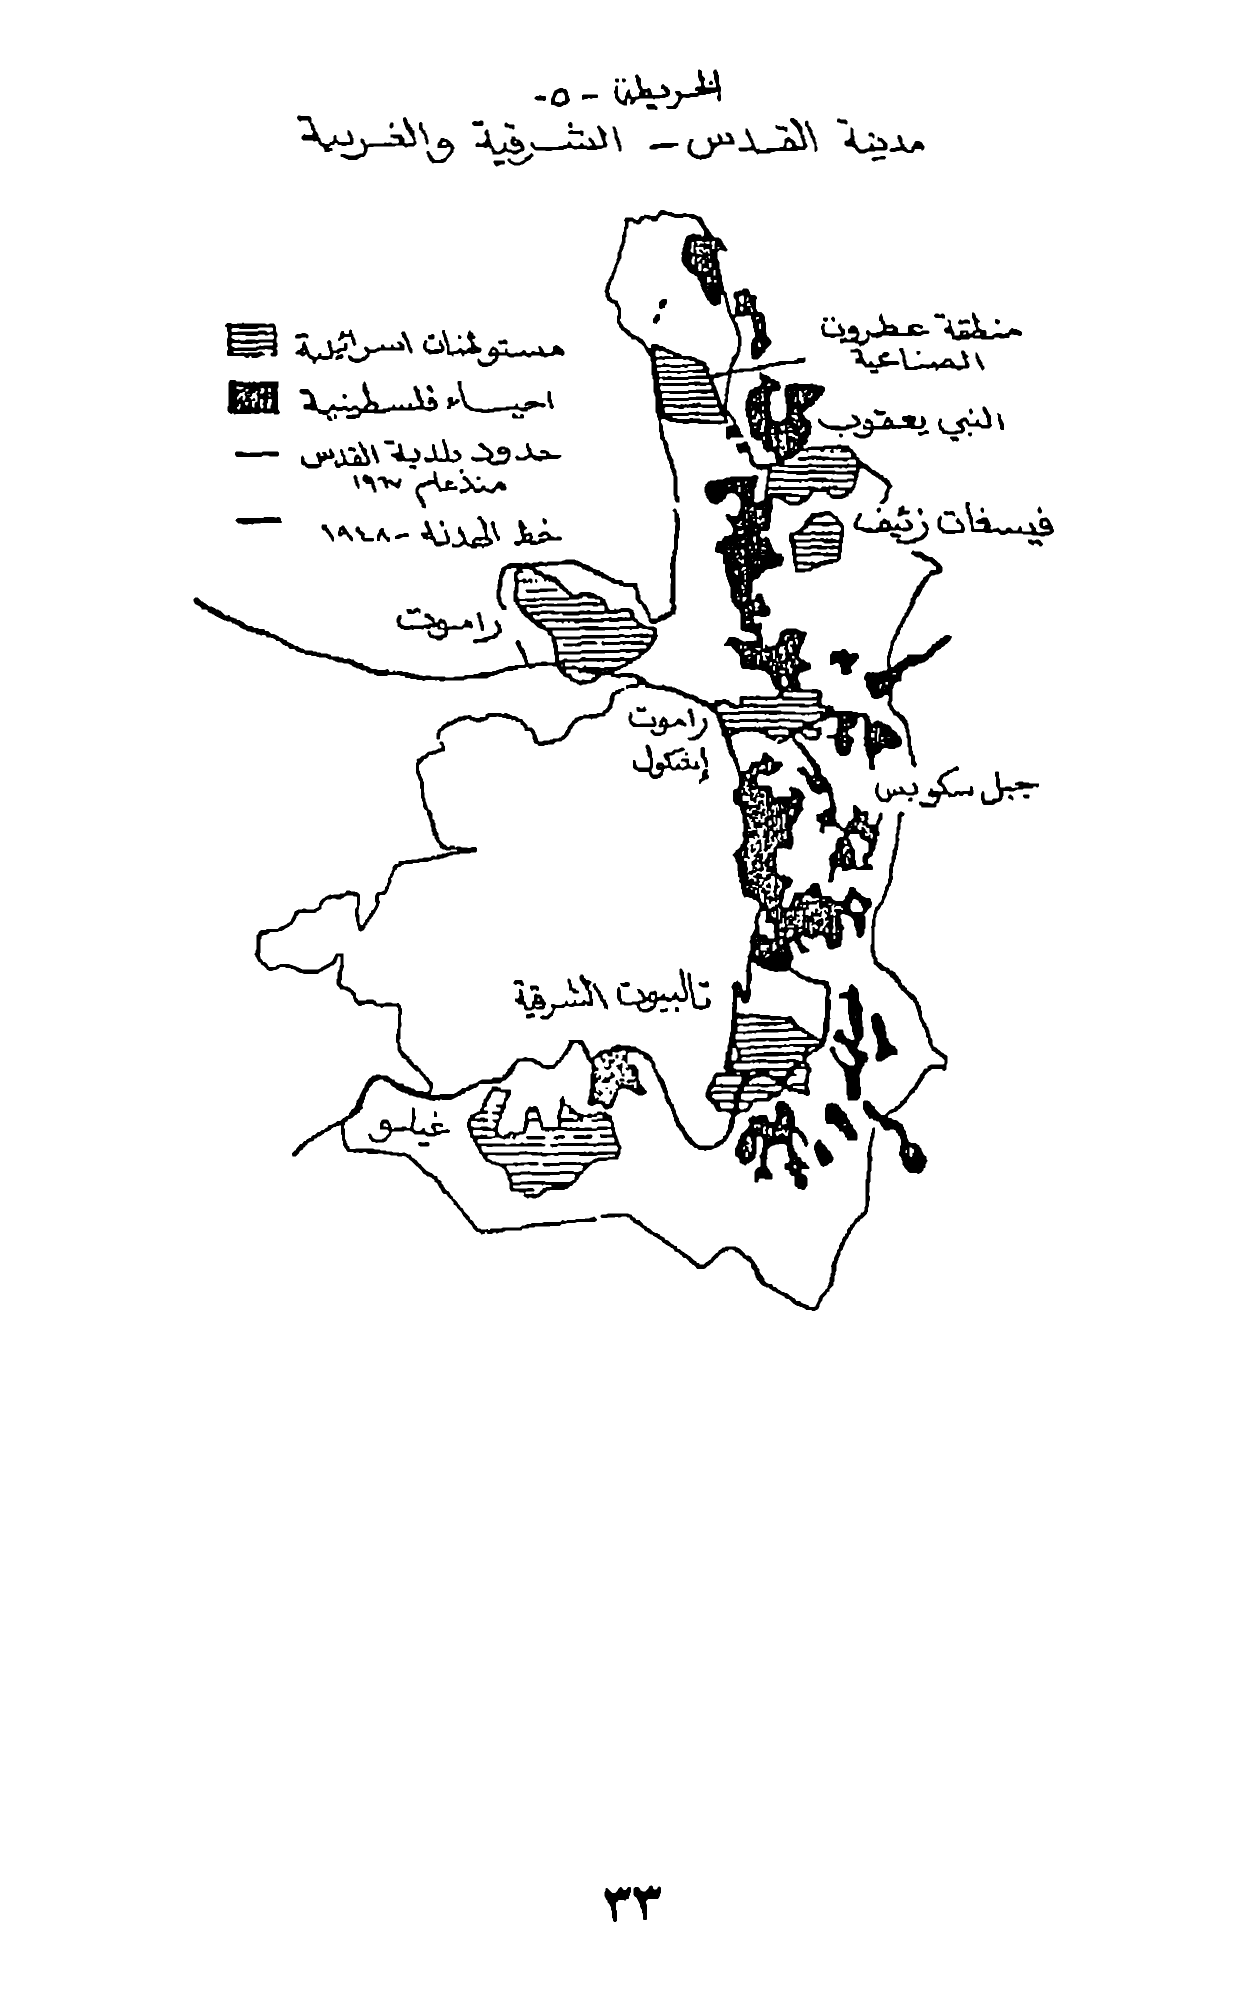 الخريطة - ٥-
مدينة القدس - الشرقية والغربية
مستوطنات اسرائيلية
احياء فلسطينية
حدود بلدية القدس
منذ عام ١٩٦٧
خط الهدنة - ١٩٤٨
منطقة عطروت
الصناعية
النبي يعقوب
فيسفات زئيف
راموت
راموت
إشكول
جبل سكوبس
تالبيوت الشرقية
غيلو
٣٣